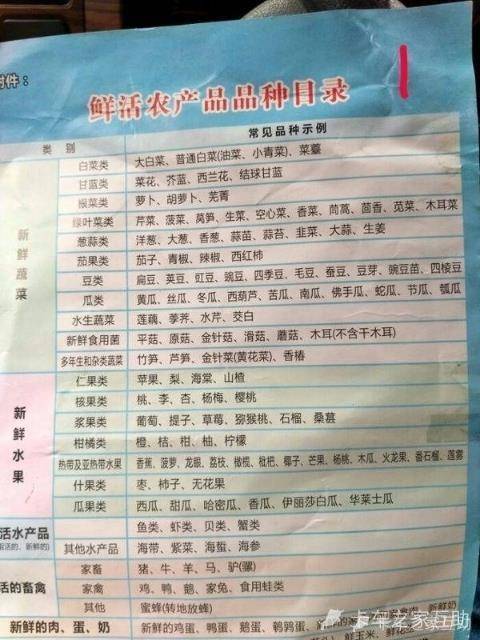 附件：
鲜活农产品品种目录
类 别 常见品种示例
新鲜蔬菜
白菜类 大白菜、普通白菜(油菜、小青菜)、菜薹
甘蓝类 菜花、芥蓝、西兰花、结球甘蓝
根菜类 萝卜、胡萝卜、芜菁
绿叶菜类 芹菜、菠菜、莴笋、生菜、空心菜、香菜、茼蒿、茴香、苋菜、木耳菜
葱蒜类 洋葱、大葱、香葱、蒜苗、蒜苔、韭菜、大蒜、生姜
茄果类 茄子、青椒、辣椒、西红柿
豆类 扁豆、荚豆、豇豆、豌豆、四季豆、毛豆、蚕豆、豆芽、豌豆苗、四棱豆
瓜类 黄瓜、丝瓜、冬瓜、西葫芦、苦瓜、南瓜、佛手瓜、蛇瓜、节瓜、瓠瓜
水生蔬菜 莲藕、荸荠、水芹、茭白
新鲜食用菌 平菇、原菇、金针菇、滑菇、蘑菇、木耳(不含干木耳)
多年生和杂类蔬菜 竹笋、芦笋、金针菜(黄花菜)、香椿
新鲜水果
仁果类 苹果、梨、海棠、山楂
核果类 桃、李、杏、杨梅、樱桃
浆果类 葡萄、提子、草莓、猕猴桃、石榴、桑葚
柑橘类 橙、桔、柑、柚、柠檬
热带及亚热带水果 香蕉、菠萝、龙眼、荔枝、橄榄、枇杷、椰子、芒果、杨桃、木瓜、火龙果、番石榴、莲雾
什果类 枣、柿子、无花果
瓜果类 西瓜、甜瓜、哈密瓜、香瓜、伊丽莎白瓜、华莱士瓜
活水产品 鱼类、虾类、贝类、蟹类
活的、新鲜的)
其他水产品 海带、紫菜、海蜇、海参
活的畜禽
家畜 猪、牛、羊、马、驴(骡)
家禽 鸡、鸭、鹅、家兔、食用蛙类
其他 蜜蜂(转地放蜂)
新鲜的肉、蛋、奶 新鲜的鸡蛋、鸭蛋、鹅蛋、鹌鹑蛋
新鲜奶
卡车之家互助